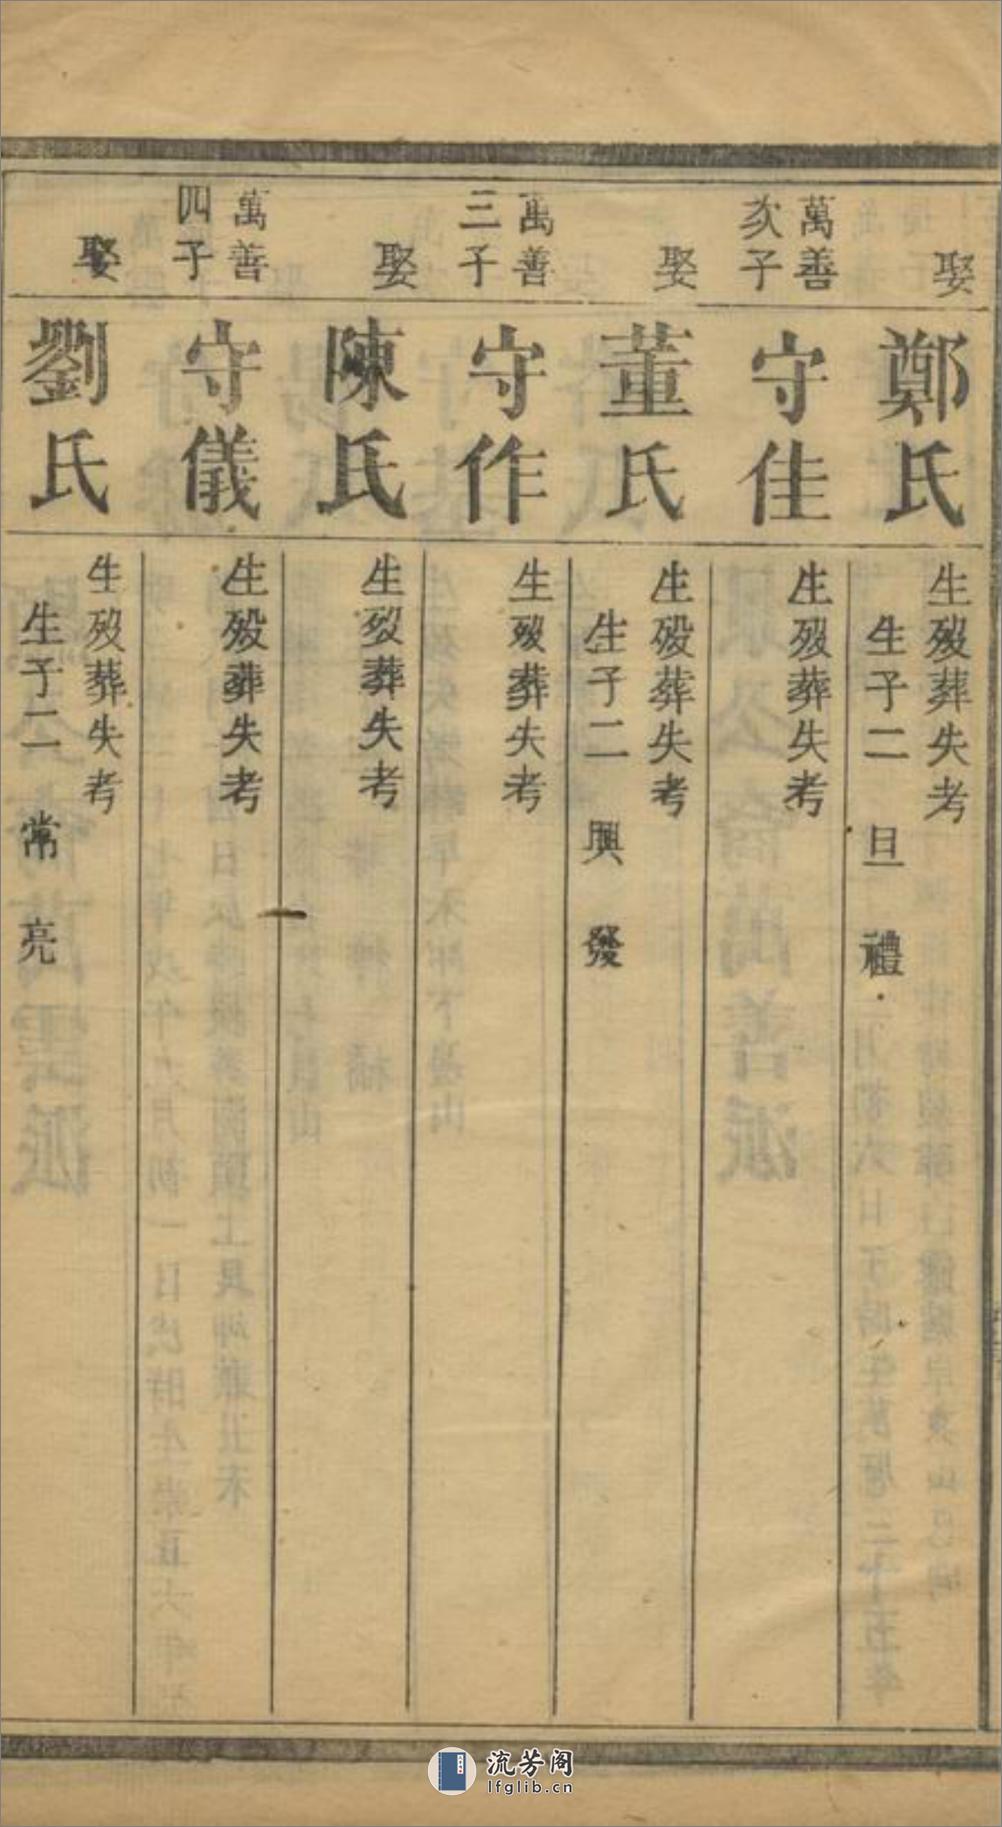 娶
鄭氏
生歿葬失考
生子二 旦 禮
萬善
次子
守佳
生歿葬失考
娶
董氏
生歿葬失考
生子二 興 發
萬善
三子
守作
生歿葬失考
娶
陳氏
生歿葬失考
萬善
四子
守儀
生歿葬失考
娶
劉氏
生歿葬失考
生子二 常 亮
流芳阁
lfglib.cn